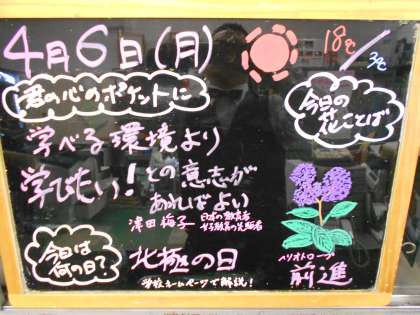 4月6日(月)
18℃/3℃
君の心のポケットに
学べる環境より
学びたい!との意志が
あればよい
津田梅子 日本の教育者
女子教育の先駆者
今日の
花ことば
ヘリオトロープ
前進
今日は
何の日?
北極の日
学校ホームページで解説!